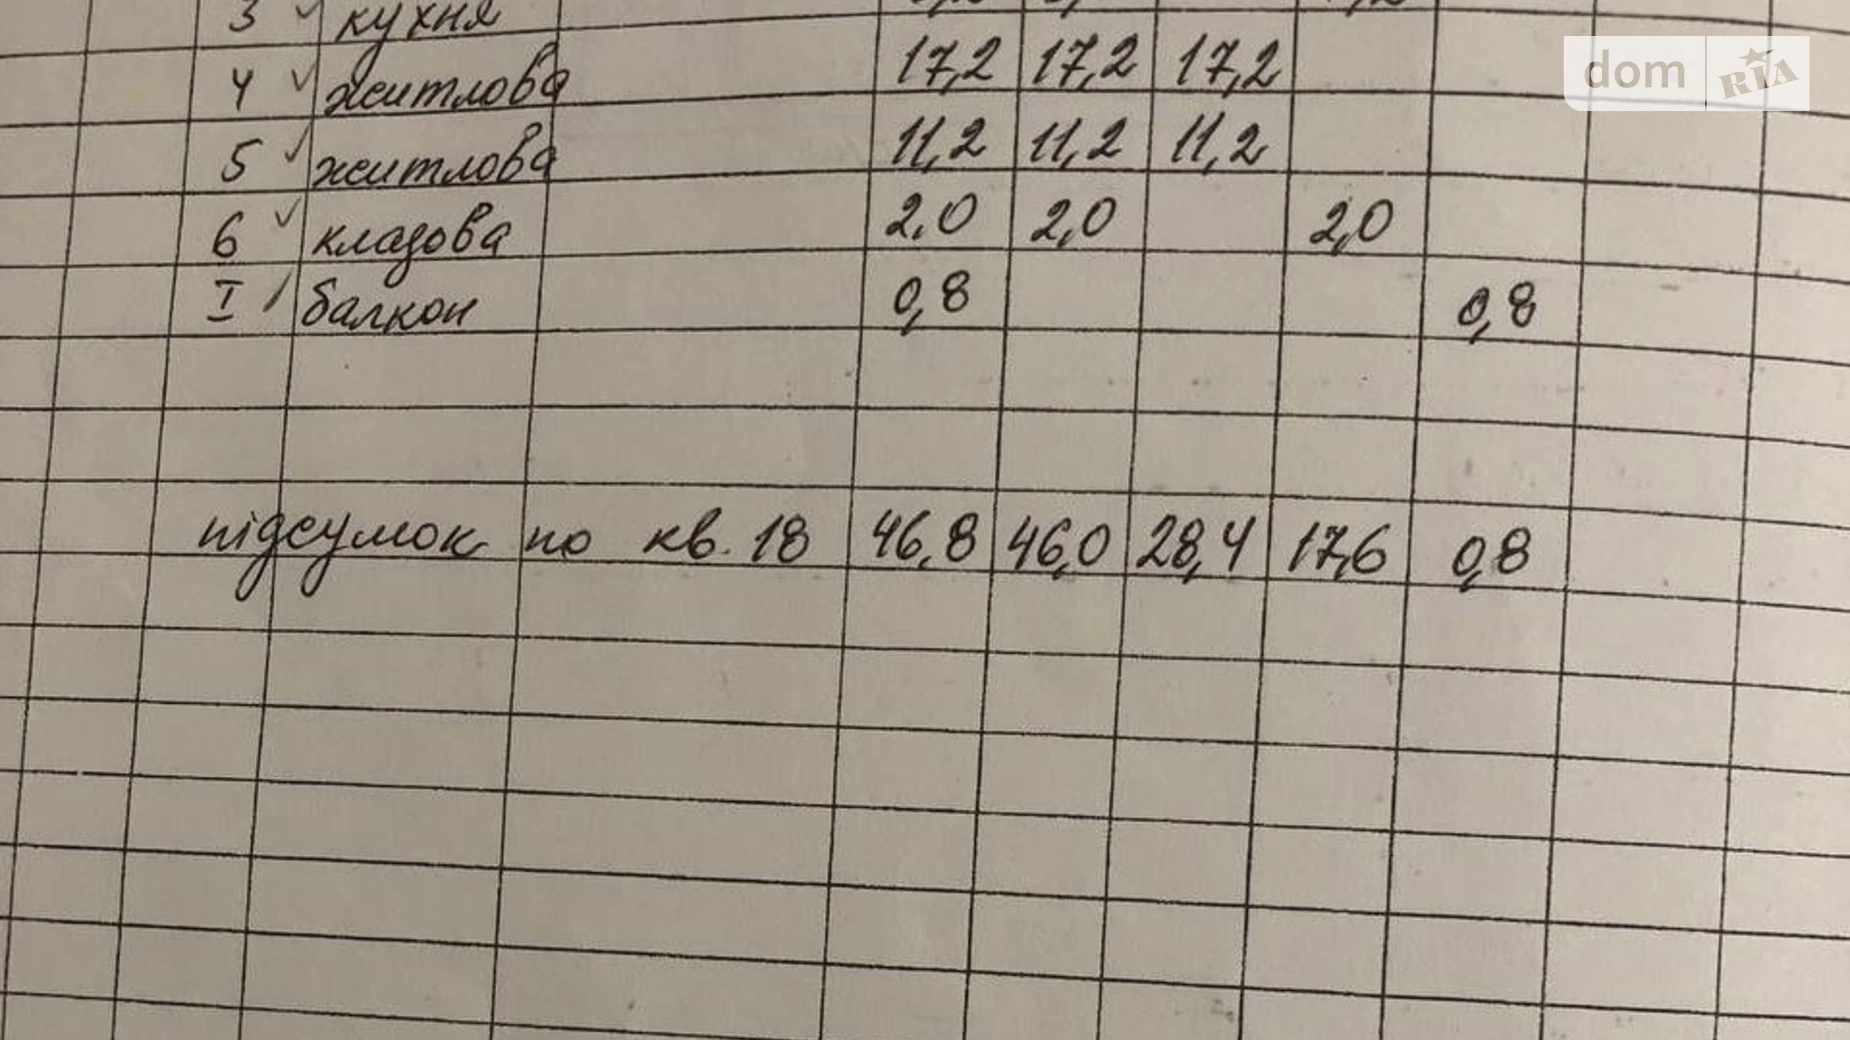 3 кухня
4 житлова 17,2 17,2 17,2
5 житлова 11,2 11,2 11,2
6 кладова 2,0 2,0 2,0
I балкон 0,8 0,8
підсумок по кв. 18 46,8 46,0 28,4 17,6 0,8
dom RIA